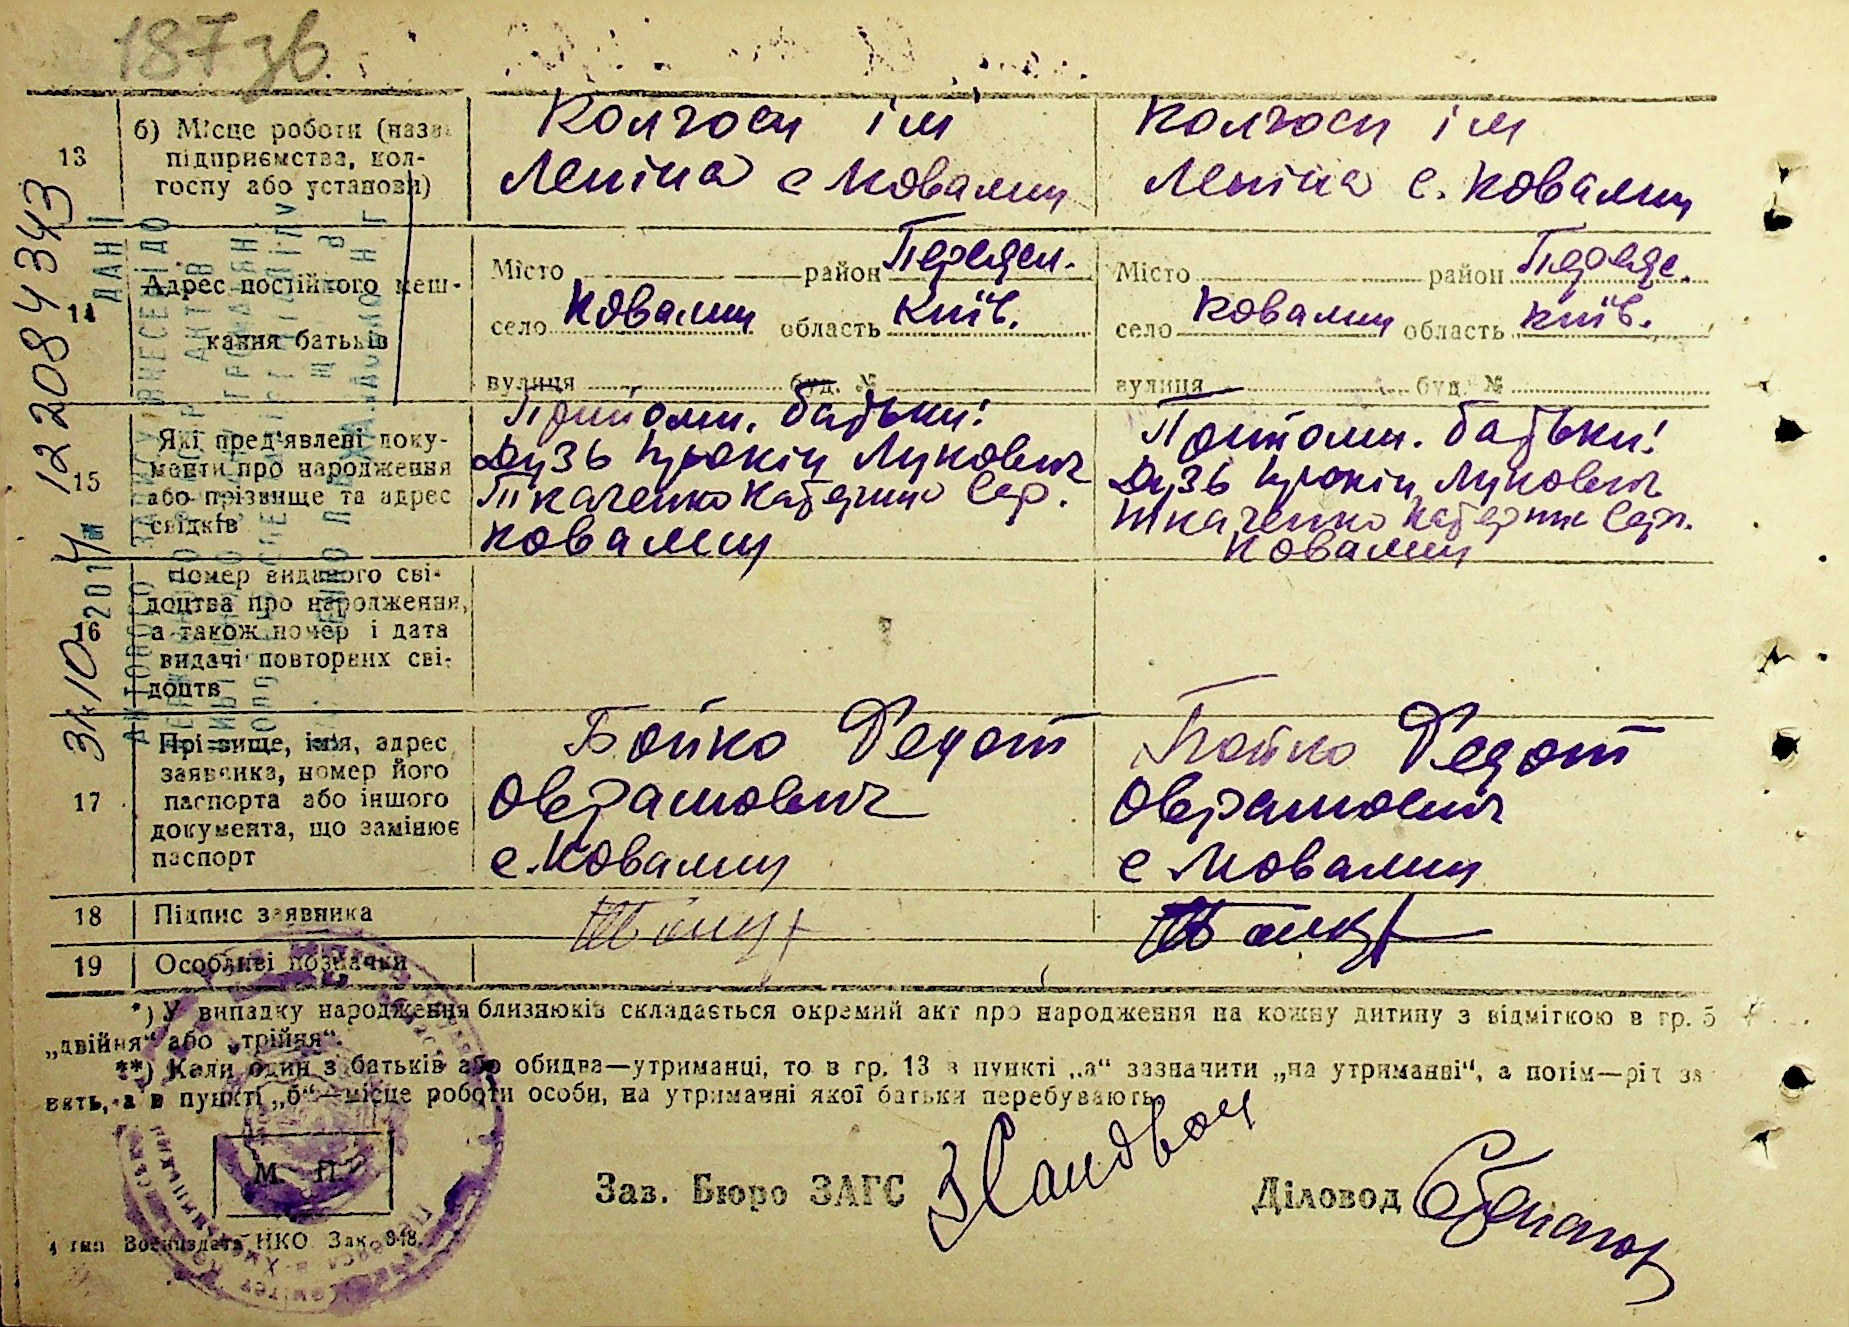 187 зв.
13
б) Місце роботи (назва
підприємства, кол-
госпу або установи)
Колгосп ім
Леніна с Ковалин
Колгосп ім
Леніна с. Ковалин
14
Адрес постійного меш-
кання батьків
Місто район Переясл.
село Ковалин область Київ.
вулиця буд. №
Місто район Переяс.
село Ковалин область Київ.
вулиця буд. №
15
Які пред'явлені доку-
менти про народження
або прізвище та адрес
свідків
батьки!
Дузь Лукович
Ткаченко Катерина Сер.
Ковалин
батьки!
Дузь Лукович
Ткаченко Катерина Серг.
Ковалин
16
Номер виданого сві-
доцтва про народження,
а також номер і дата
видачі повторних сві-
доцтв
17
Прізвище, ім'я, адрес
заявника, номер його
паспорта або іншого
документа, що замінює
паспорт
Бойко Федот
Оврамович
с. Ковалин
Бойко Федот
Оврамович
с Ковалин
18 Підпис заявника
19 Особливі позначки
*) У випадку народження близнюків складається окремий акт про народження на кожну дитину з відміткою в гр. 5
„двійня“ або „трійня“.
**) Коли один з батьків або обидва—утриманці, то в гр. 13 в пункті „а“ зазначити „на утриманні“, а потім—рід за
нять, а в пункті „б“—місце роботи особи, на утриманні якої батьки перебувають.
М. П.
Зав. Бюро ЗАГС
Діловод
4 тип Воениздата НКО Зак. 348.
31.10 2014 12208 4343